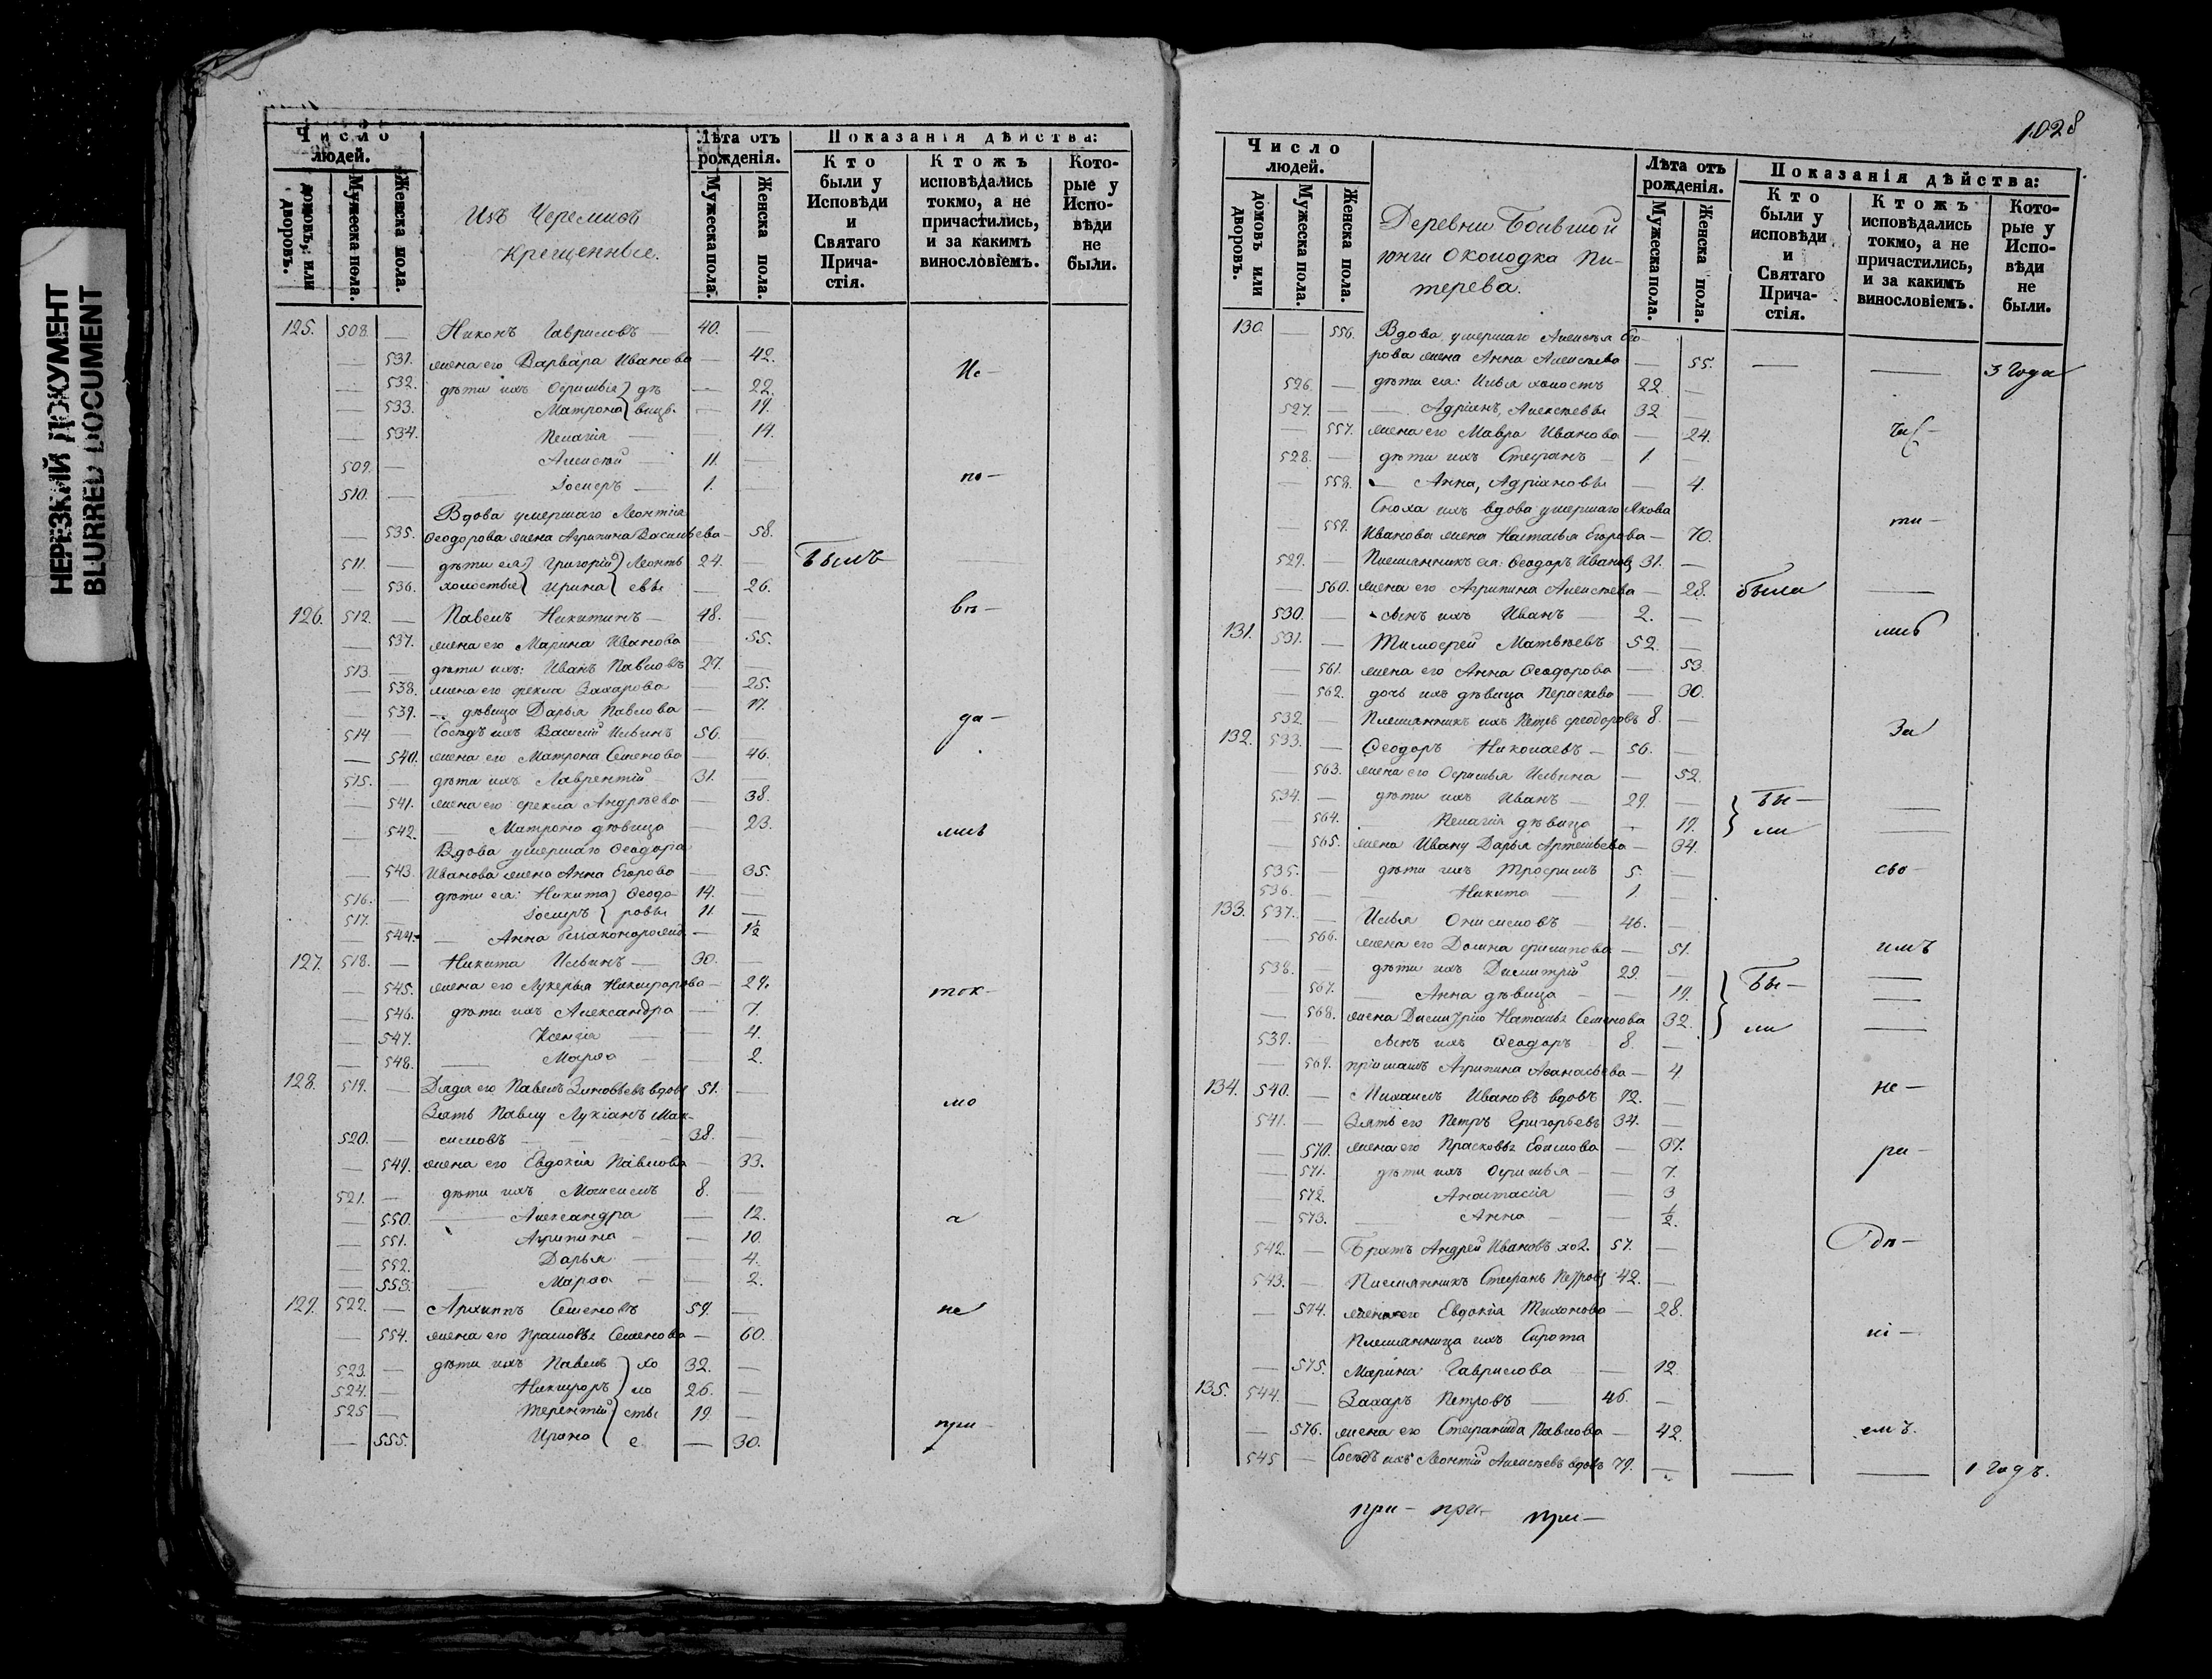 НЕРЕЗКИЙ ДОКУМЕНТ
BLURRED DOCUMENT
Число людей.
домовъ, или дворовъ.
Мужеска пола.
Женска пола.
Изъ Черемисъ
Крещенные.
Лѣта отъ рожденія.
Мужеска пола.
Женска пола.
Показанія дѣйства:
Кто были у Исповѣди и Святаго Прича-стія.
Ктожъ исповѣдались токмо, а не причастились, и за какимъ винословіемъ.
Кото-рые у Испо-вѣди не были.
125. 508. — Никонъ Гавриловъ — 40. —
— 531. жена его Варвара Иванова — 42.
Ис-
— 532. дѣти ихъ Офимья } дѣ — 22.
— 533. Матрона } вицы. — 19.
— 534. Пелагія — 14.
509. — Алексѣй — 11. —
по-
510. — Іосифъ — 1. —
Вдова умершаго Леонтія
— 535. Ѳеодорова жена Агрипина Васильева — 58.
511. — дѣти ея } Григорій } Леонть 24. — Былъ —
— 536. холостые } Ирина } евы — 26.
вѣ-
126. 512. — Павелъ Никитинъ — 48. —
— 537. жена его Марина Иванова — 55.
513 — дѣти ихъ: Иванъ Павловъ 27. —
— 538. жена его Фекла Захарова — 25.
— 539. — дѣвица Дарья Павлова — 17.
да-
514 — Сосѣдъ ихъ Василій Ильинъ 56. —
— 540. жена его Матрона Семенова — 46.
515. — дѣти ихъ Лаврентій — 31. —
— 541. жена его Фекла Андрѣева — 38.
— 542. — Матрона дѣвица — 23.
лись
Вдова умершаго Ѳеодора
— 543. Иванова жена Анна Егорова — 35.
516. — дѣти ея: Никита } Ѳеодо- 14. —
517. — Іосифъ } ровы 11. —
— 544. — Анна — 1½
127. 518. — Никита Ильинъ — 30. —
— 545. жена его Лукерья Никифорова — 29.
ток-
— 546. дѣти ихъ Александра — 7.
— 547. Ксенія — 4.
— 548. — Марѳа — 2.
128. 519. — Дядя его Павелъ Зиновьевъ вдовъ 51. —
мо
Зять Павлу Лукіанъ Мак-
520. — симовъ — 38. —
— 549. жена его Евдокія Павлова — 33.
521. — дѣти ихъ Максимъ 8. —
— 550. — Александра — 12.
а
— 551. Агрипина — 10.
— 552. Дарья — 4.
— 553. — Марѳа — 2.
129. 522. — Архиппъ Семеновъ 59. —
не
— 554. жена его Прасковья Семенова — 60.
523. — дѣти ихъ Павелъ } хо 32. —
524. — Никифоръ } ло 26. —
525 — Терентій } сты 19. —
при-
— 555. Ирина } е. — 30.
1028
Число людей.
домовъ или дворовъ.
Мужеска пола.
Женска пола.
Деревни Большой
Юнги Околодка Пи-
терева.
Лѣта отъ рожденія.
Мужеска пола.
Женска пола.
Показанія дѣйства:
Кто были у исповѣди и Святаго Прича-стія.
Ктожъ исповѣдались токмо, а не причастились, и за какимъ винословіемъ.
Кото-рые у Испо-вѣди не были.
130. — 556. Вдова умершаго Алексѣя
рова жена Анна Алексѣева — 55. — — 3 года
526. — дѣти ея: Илья холостъ 22. —
527. — — Адріанъ, Алексѣевы 32 —
— 557. жена его Мавра Иванова — 24.
528. — дѣти ихъ Стефанъ — 1. —
— 558. — Анна, Адріановы — 4.
Сноха ихъ вдова умершаго Якова
— 559. Иванова жена Наталья Егорова — 70.
ти-
529. — Племянникъ ея: Ѳеодоръ Ивановъ 31. —
— 560. жена его Агрипина Алексѣева — 28. была —
530. — сынъ ихъ Иванъ — 2. —
лись
131. 531. — Тимоѳей Матвѣевъ 52. —
— 561. жена его Анна Ѳеодорова — 53.
— 562. дочь ихъ дѣвица Параскева — 30.
532 — Племянникъ ихъ Петръ Феодоровъ 8. —
За
132. 533. — Ѳеодоръ Николаевъ — 56. —
— 563. жена его Офимья Ильина — 52.
534. — дѣти ихъ Иванъ — 29. — } Бы- —
— 564. Пелагія дѣвица — 19. } ли —
— 565. жена Ивану Дарья Артемьева — 34.
535. — дѣти ихъ Трофимъ 5. —
сво-
536. — — Никита — 1. —
133. 537. — Илья Онисимовъ — 46. —
— 566. жена его Домна Филипова — 51.
имъ
538. — дѣти ихъ Димитрій 29. — } Бы- —
— 567. — Анна дѣвица — 19. —
— 568. жена Димитрію Наталья Семенова 32. } ли —
539. — сынъ ихъ Ѳеодоръ 8. —
— 569. пріемышъ Агрипина Аѳанасьева — 4.
не-
134. 540. — Михаилъ Ивановъ вдовъ 72. —
541. — Зять его Петръ Григорьевъ 34. —
— 570. жена его Прасковья Ефимова — 37.
ра-
— 571. дѣти ихъ Офимья — 7.
— 572. Анастасія — 3
— 573. — Анна — ½.
542. — Братъ Андрей Ивановъ хол. 57. —
дѣ-
543. — Племянникъ Стефанъ Петровъ 42. —
— 574. жена его Евдокія Тихонова — 28.
ні-
Племянница ихъ Сирота
— 575. Марина Гаврилова — 12
135. 544. — Захаръ Петровъ — 46. —
— 576. жена его Степанида Павлова — 42.
емъ.
545 — Сосѣдъ ихъ Леонтій Алексѣевъ вдовъ 79. — — — 1 годъ.
при- при- при-